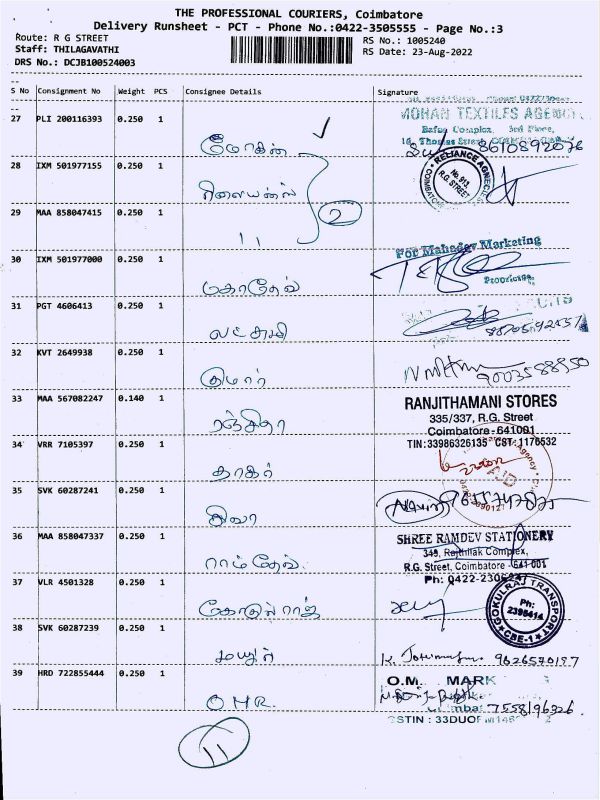 THE PROFESSIONAL COURIERS, Coimbatore
Delivery Runsheet - PCT - Phone No.:0422-3505555 - Page No.:3
Route: R G STREET
RS No.: 1005240
Staff: THILAGAVATHI
RS Date: 23-Aug-2022
DRS No.: DCJB100524003
S No Consignment No Weight PCS Consignee Details Signature
27 PLI 200116393 0.250 1 மோகன்
MOHAN TEXTILES AGENCY
3rd Floor,
8010892076
28 IXM 501977155 0.250 1 ரிலையன்ஸ்
RELIANCE AGENCIES
No 913
R.G. STREET
29 MAA 858047415 0.250 1 11
2
30 IXM 501977000 0.250 1 மகாதேவ்
For Mahadev Marketing
31 PGT 4606413 0.250 1 லட்சுமி
32 KVT 2649938 0.250 1 குமார்
9003588950
33 MAA 567082247 0.140 1 ரஞ்சிதா
RANJITHAMANI STORES
335/337, R.G. Street
Coimbatore-641001
TIN:33986326135 CST:1176532
34 VRR 7105397 0.250 1 தாகர்
AJD
35 SVK 60287241 0.250 1 சிவா
36 MAA 858047337 0.250 1 ராம்தேவ்
SHREE RAMDEV STATIONERY
349, Rajthilak Complex,
R.G. Street, Coimbatore - 641 001
Ph: 0422-2306247
37 VLR 4501328 0.250 1 கோகுல்ராஜ்
GOKULRAJ TRANSPORT
Ph:
2396414
CBE-1
38 SVK 60287239 0.250 1 மயூர்
9626570197
39 HRD 722855444 0.250 1 OMR.
O.M. MARK
7558196326
11